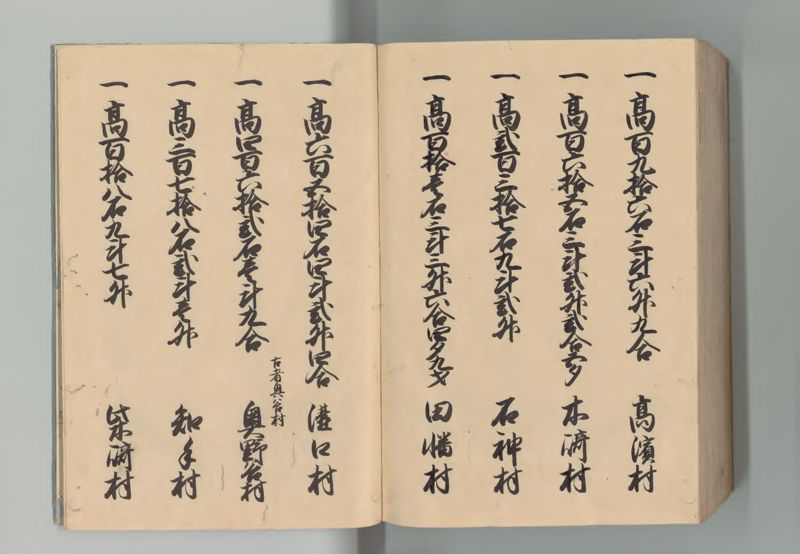 一 高百九拾六石三斗六升九合 高濱村
一 高百六拾五石三斗弐升弐合五夕 木﨑村
一 高弐百三拾七石九斗弐升 石神村
一 高百拾壱石三斗三升六合四夕九才 田幡村
一 高六百五拾四石四斗弐升四合 溝口村
一 高四百六拾弐石壱斗九合 奥野谷村
古者奥谷村
一 高三百七拾八石弐斗壱升 知手村
一 高百拾八石九斗七升 柴﨑村